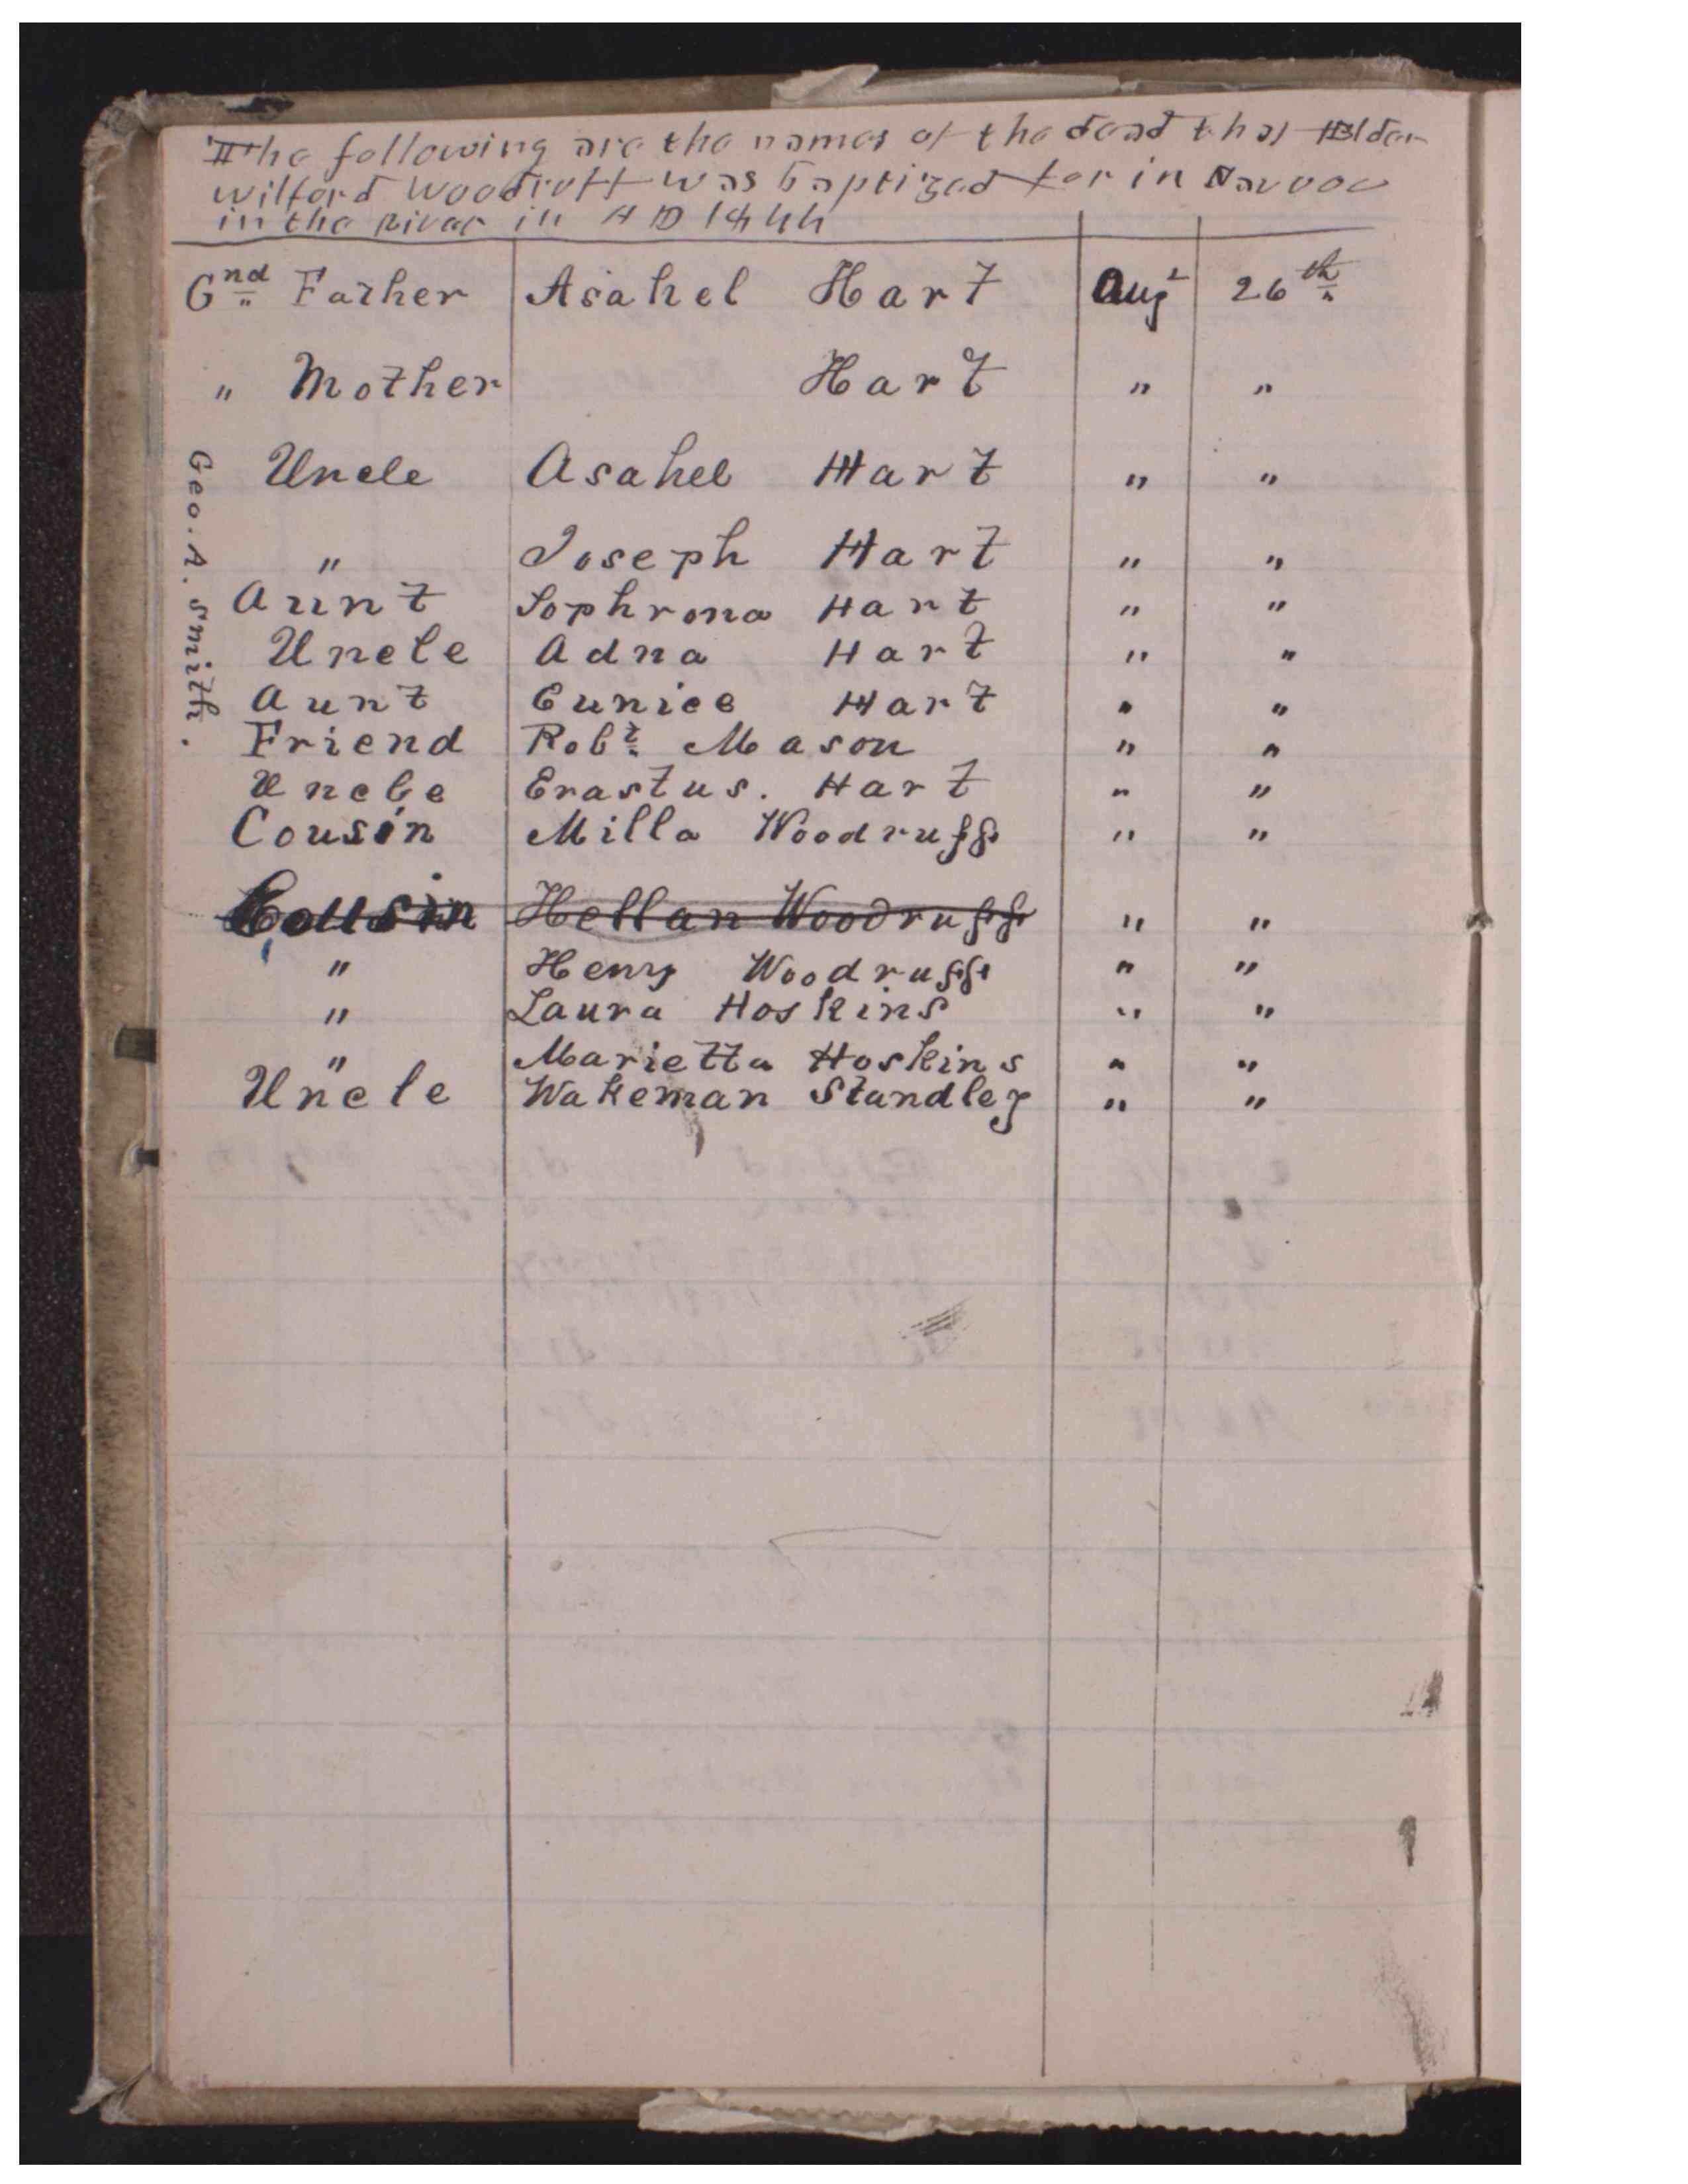 The following are the names of the dead that Elder
wilford woodruff was baptized for in Nauvoo
in the River in A D 1844
Gnd Father Asahel Hart Augt 26th
" Mother Hart " "
Uncle Asahel Hart " "
" Joseph Hart " "
Aunt Sophrona Hart " "
Uncle Adna Hart " "
Aunt Eunice Hart " "
Friend Robt. Mason " "
Uncle Erastus. Hart " "
Cousin Milla Woodruff " "
Cousin Hellan Woodruff " "
" Henry Woodruff " "
" Laura Hoskins " "
" Marietta Hoskins " "
Uncle Wakeman Standley " "
Geo. A. Smith.